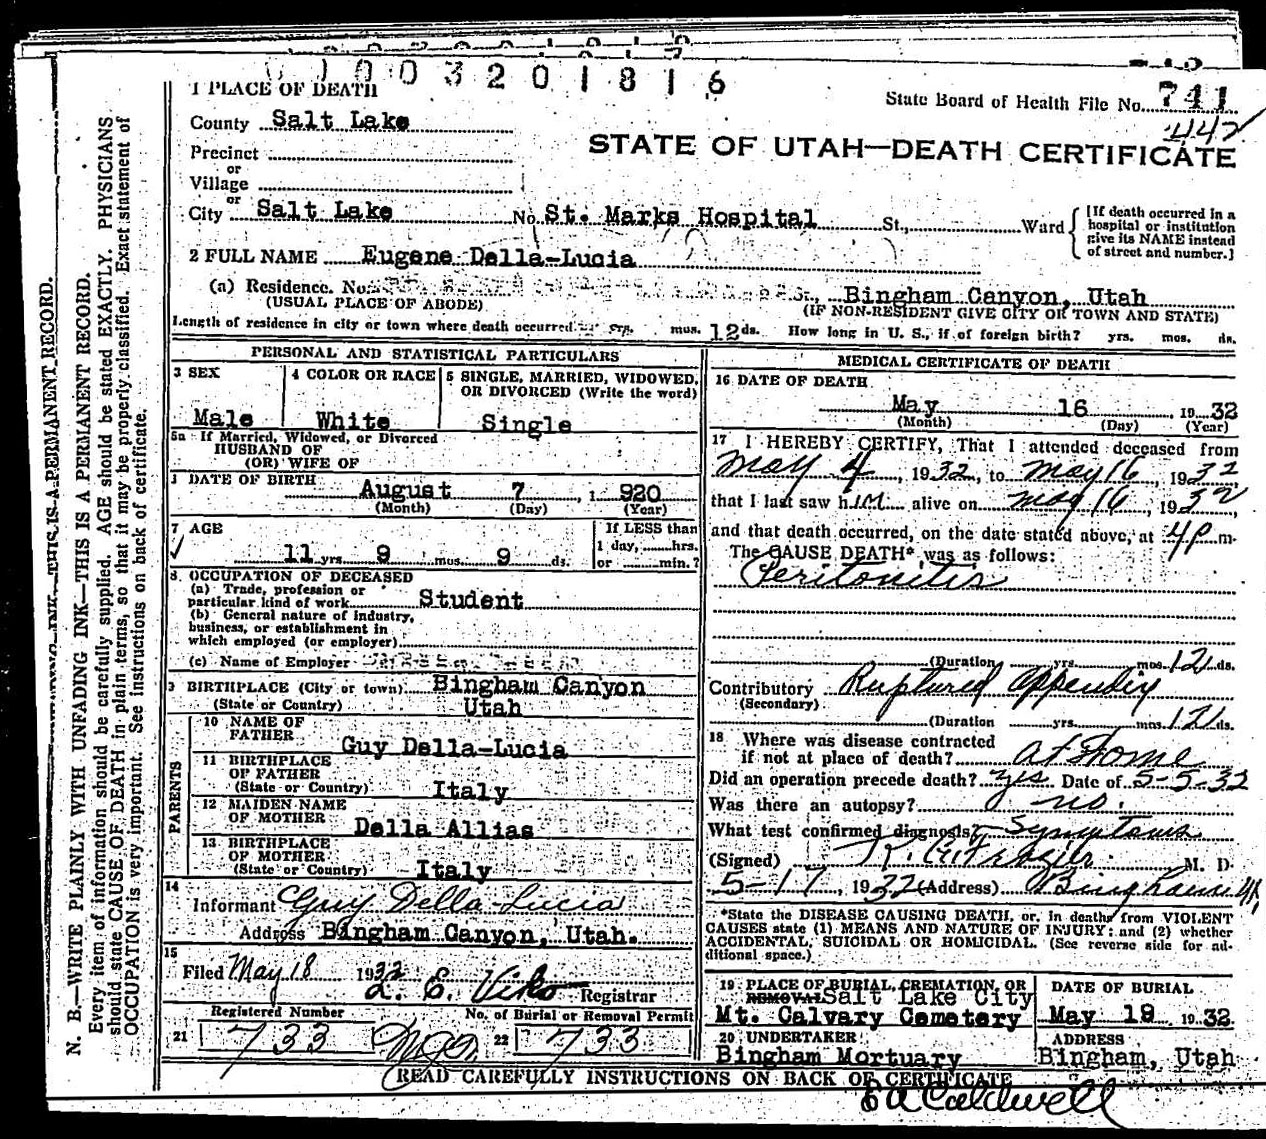 1003201816
1 PLACE OF DEATH
State Board of Health File No. 741
442
County Salt Lake
STATE OF UTAH—DEATH CERTIFICATE
Precinct
or
Village
or
City Salt Lake No. St. Marks Hospital St., Ward
[If death occurred in a hospital or institution give its NAME instead of street and number.]
2 FULL NAME Eugene Della-Lucia
(a) Residence. No. St., Bingham Canyon, Utah
(USUAL PLACE OF ABODE) (IF NON-RESIDENT GIVE CITY OR TOWN AND STATE)
Length of residence in city or town where death occurred yrs. mos. 12 ds. How long in U. S., if of foreign birth? yrs. mos. ds.
PERSONAL AND STATISTICAL PARTICULARS
3 SEX
Male
4 COLOR OR RACE
White
5 SINGLE, MARRIED, WIDOWED, OR DIVORCED (Write the word)
Single
5a If Married, Widowed, or Divorced
HUSBAND OF
(OR) WIFE OF
DATE OF BIRTH
August 7, 1920
(Month) (Day) (Year)
7 AGE
11 yrs. 9 mos. 9 ds.
If LESS than
1 day, hrs.
or min.?
8. OCCUPATION OF DECEASED
(a) Trade, profession or
particular kind of work Student
(b) General nature of industry,
business, or establishment in
which employed (or employer)
(c) Name of Employer
9 BIRTHPLACE (City or town) Bingham Canyon
(State or Country) Utah
PARENTS
10 NAME OF
FATHER
Guy Della-Lucia
11 BIRTHPLACE
OF FATHER
(State or Country) Italy
12 MAIDEN NAME
OF MOTHER
Della Allias
13 BIRTHPLACE
OF MOTHER
(State or Country) Italy
14
Informant Guy Della-Lucia
Address Bingham Canyon, Utah.
15
Filed May 18 1932
L. E. Viko Registrar
Registered Number No. of Burial or Removal Permit
21 733 22 733
MEDICAL CERTIFICATE OF DEATH
16 DATE OF DEATH
May 16, 1932
(Month) (Day) (Year)
17 I HEREBY CERTIFY, That I attended deceased from
May 4, 1932, to May 16, 1932
that I last saw him alive on May 16, 1932,
and that death occurred, on the date stated above, at 4 p m.
The CAUSE DEATH* was as follows:
Peritonitis
(Duration yrs. mos. 12 ds.
Contributory Ruptured appendix
(Secondary)
(Duration yrs. mos. 12 ds.
18 Where was disease contracted
if not at place of death? at Home
Did an operation precede death? yes. Date of 5-5-32
Was there an autopsy? no.
What test confirmed diagnosis? Symptoms
(Signed) Frazier M. D.
5-17, 1932 (Address) Bingham
*State the DISEASE CAUSING DEATH, or, in deaths from VIOLENT
CAUSES state (1) MEANS AND NATURE OF INJURY; and (2) whether
ACCIDENTAL, SUICIDAL OR HOMICIDAL. (See reverse side for ad-
ditional space.)
19 PLACE OF BURIAL, CREMATION, OR
REMOVAL Salt Lake City
Mt. Calvary Cemetery
DATE OF BURIAL
May 19 1932
20 UNDERTAKER
Bingham Mortuary
ADDRESS
Bingham, Utah
READ CAREFULLY INSTRUCTIONS ON BACK OF CERTIFICATE
E A Caldwell
N. B.—WRITE PLAINLY WITH UNFADING INK—THIS IS A PERMANENT RECORD.
Every item of information should be carefully supplied. AGE should be stated EXACTLY. PHYSICIANS
should state CAUSE OF DEATH in plain terms, so that it may be properly classified. Exact statement of
OCCUPATION is very important. See instructions on back of certificate.